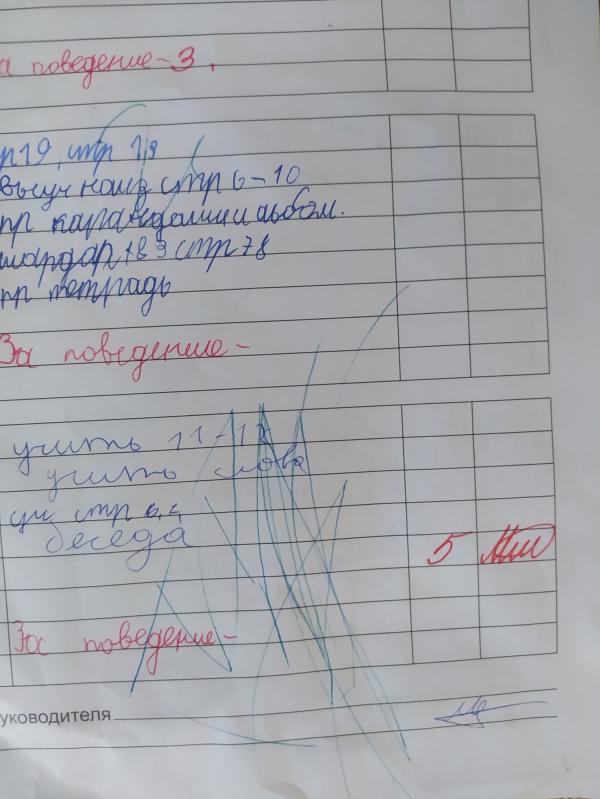 а поведение-3.
р19, стр 1,9
выуч наиз стр 6-10
пр карандаши и альбом.
стр 78
пр тетрадь
За поведение-
учить 11-12
учить слова
стр
беседа 5
За поведение-
уководителя